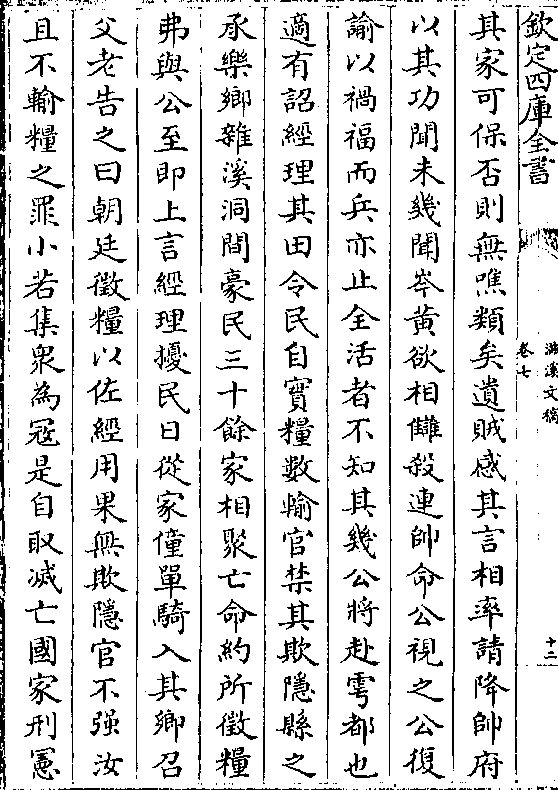 欽定四庫全書
灊溪文稿
卷七
十二
其家可保否則無噍類矣遺賊感其言相率請降帥府
以其功聞未幾聞岑黄欲相讎殺連帥命公視之公復
諭以禍福而兵亦止全活者不知其幾公將赴雩都也
適有詔經理其田令民自實糧數輸官禁其欺隱縣之
承樂鄉雜溪洞間豪民三十餘家相聚亡命約所徵糧
弗與公至即上言經理擾民日從家僮單騎入其鄉召
父老告之曰朝廷徵糧以佐經用果無欺隱官不强汝
且不輸糧之罪小若集衆為冦是自取滅亡國家刑憲